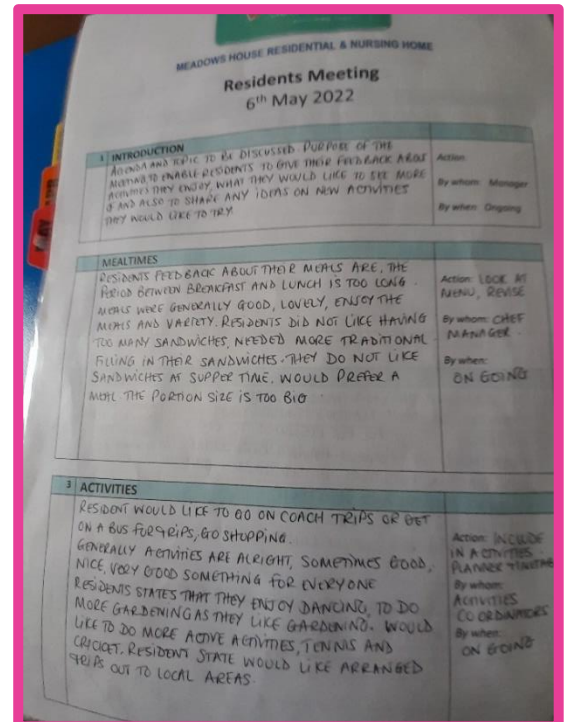 MEADOWS HOUSE RESIDENTIAL & NURSING HOME
Residents Meeting
6th May 2022
1 INTRODUCTION
AGENDA AND TOPIC TO BE DISCUSSED. PURPOSE OF THE
MEETING TO ENABLE RESIDENTS TO GIVE THEIR FEEDBACK ABOUT
ACTIVITIES THEY ENJOY, WHAT THEY WOULD LIKE TO SEE MORE
OF AND ALSO TO SHARE ANY IDEAS ON NEW ACTIVITIES
THEY WOULD LIKE TO TRY.
Action:
By whom: Manager
By when: Ongoing
MEALTIMES
RESIDENTS FEEDBACK ABOUT THEIR MEALS ARE, THE
PERIOD BETWEEN BREAKFAST AND LUNCH IS TOO LONG.
MEALS WERE GENERALLY GOOD, LOVELY, ENJOY THE
MEALS AND VARIETY. RESIDENTS DID NOT LIKE HAVING
TOO MANY SANDWICHES, NEEDED MORE TRADITIONAL
FILLING IN THEIR SANDWICHES. THEY DO NOT LIKE
SANDWICHES AT SUPPER TIME. WOULD PREFER A
MEAL THE PORTION SIZE IS TOO BIG
Action: LOOK AT
MENU, REVISE
By whom: CHEF
MANAGER.
By when:
ON GOING
3 ACTIVITIES
RESIDENT WOULD LIKE TO GO ON COACH TRIPS OR GET
ON A BUS FOR TRIPS, GO SHOPPING.
GENERALLY ACTIVITIES ARE ALRIGHT, SOMETIMES GOOD,
NICE, VERY GOOD SOMETHING FOR EVERYONE
RESIDENTS STATES THAT THEY ENJOY DANCING, TO DO
MORE GARDENING AS THEY LIKE GARDENING. WOULD
LIKE TO DO MORE ACTIVE ACTIVITIES, TENNIS AND
CRICKET. RESIDENT STATE WOULD LIKE ARRANGED
TRIPS OUT TO LOCAL AREAS.
Action: INCLUDE
IN ACTIVITIES
PLANNER
By whom:
ACTIVITIES
CO ORDINATORS
By when:
ON GOING